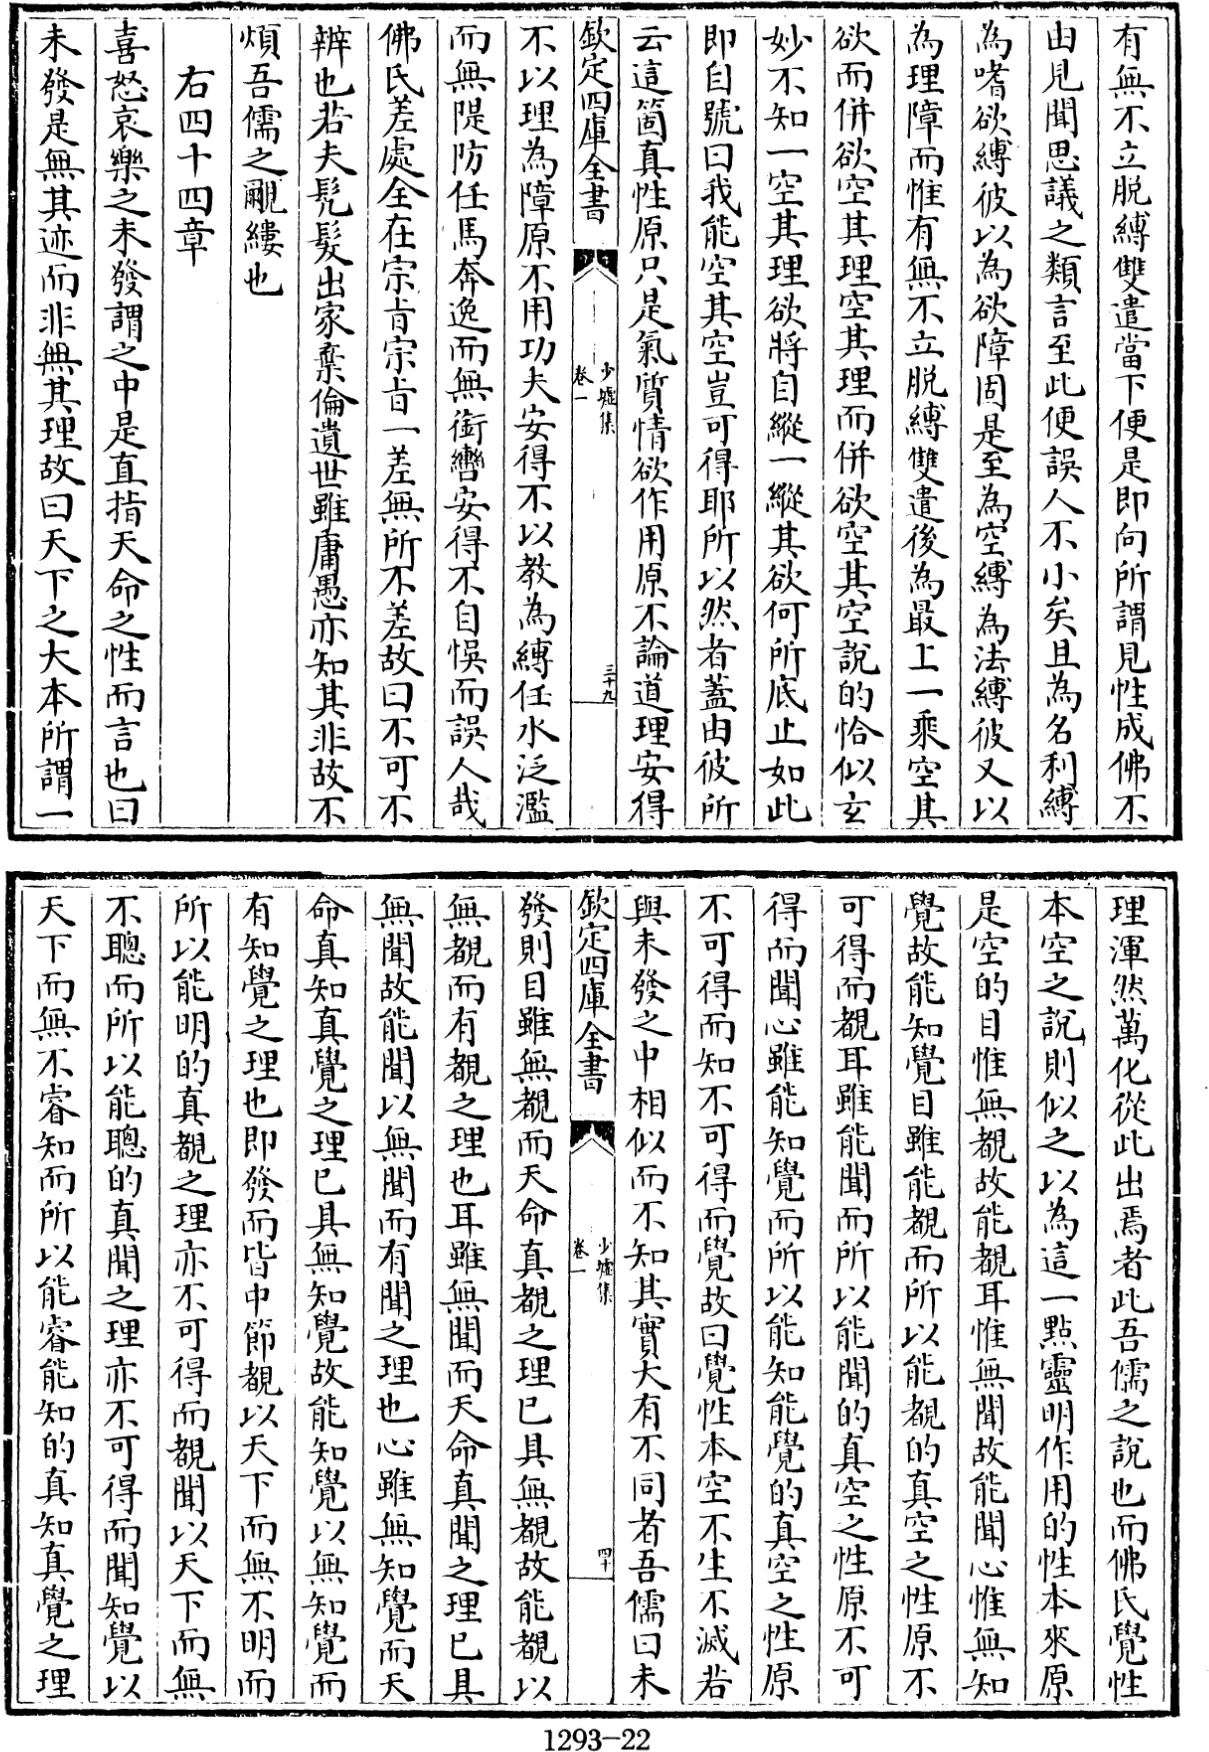 有無不立脱縛雙遣當下便是即向所謂見性成佛不
由見聞思議之類言至此便誤人不小矣且為名利縛
為嗜欲縛彼以為欲障固是至為空縛為法縛彼又以
為理障而惟有無不立脱縛雙遣後為最上一乘空其
欲而併欲空其理空其理而併欲空其空說的恰似玄
妙不知一空其理欲將自縱一縱其欲何所底止如此
即自號曰我能空其空豈可得耶所以然者蓋由彼所
云這箇真性原只是氣質情欲作用原不論道理安得
欽定四庫全書
少墟集
卷一
三十九
不以理為障原不用功夫安得不以教為縛任水泛濫
而無隄防任馬奔逸而無銜轡安得不自悞而誤人哉
佛氏差處全在宗旨宗旨一差無所不差故曰不可不
辨也若夫髡髮出家棄倫遺世雖庸愚亦知其非故不
煩吾儒之覼縷也
右四十四章
喜怒哀樂之未發謂之中是直指天命之性而言也曰
未發是無其迹而非無其理故曰天下之大本所謂一
理渾然萬化從此出焉者此吾儒之說也而佛氏覺性
本空之說則似之以為這一點靈明作用的性本來原
是空的目惟無覩故能覩耳惟無聞故能聞心惟無知
覺故能知覺目雖能覩而所以能覩的真空之性原不
可得而覩耳雖能聞而所以能聞的真空之性原不可
得而聞心雖能知覺而所以能知能覺的真空之性原
不可得而知不可得而覺故曰覺性本空不生不滅若
與未發之中相似而不知其實大有不同者吾儒曰未
欽定四庫全書
少墟集
卷一
四十
發則目雖無覩而天命真覩之理已具無覩故能覩以
無覩而有覩之理也耳雖無聞而天命真聞之理已具
無聞故能聞以無聞而有聞之理也心雖無知覺而天
命真知真覺之理已具無知覺故能知覺以無知覺而
有知覺之理也即發而皆中節覩以天下而無不明而
所以能明的真覩之理亦不可得而覩聞以天下而無
不聰而所以能聰的真聞之理亦不可得而聞知覺以
天下而無不睿知而所以能睿能知的真知真覺之理
1293-22